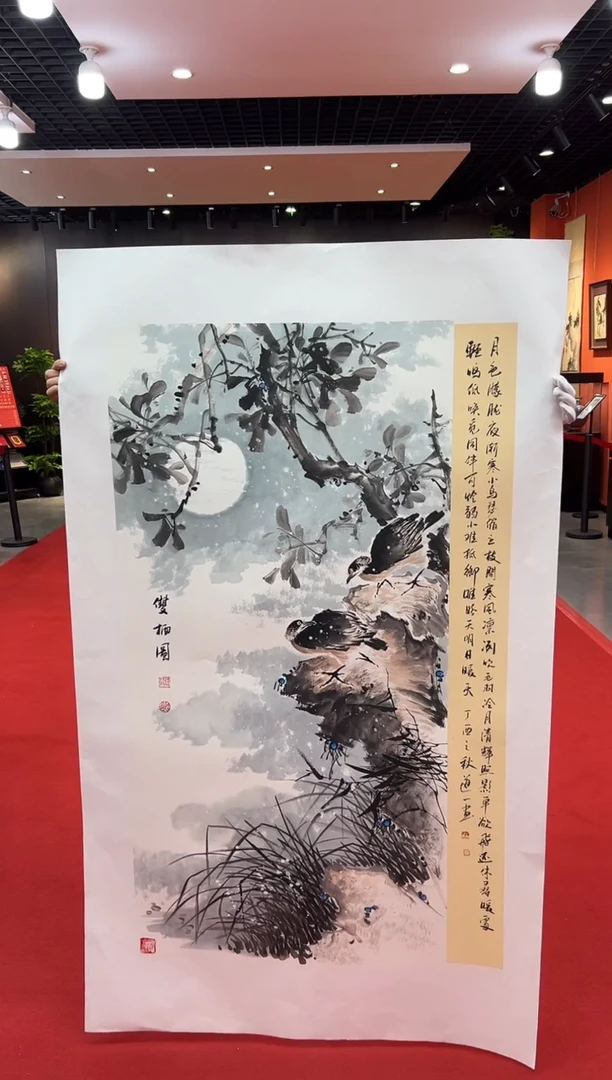 月色朦胧夜渐寒小鸟悲宿立枝间寒风凛冽吹毛羽冷月清辉照影单欲飞远休寻暖处
轻鸣低唤觅同伴可怜弱小难抵御唯盼天明日暖天 丁酉之秋道一画
雙栖圖